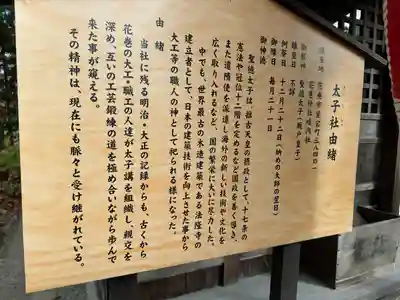 太子社由緒
鎮座日 十二月二十二日(納めの太師の翌日)
御縁日 毎月二十一日
御神徳
聖徳太子は、推古天皇の摂政として、十七条の
憲法や冠位十二階を定めるなど国政を善く導き、
また遣隋使を派遣し海外の新しい技術や文化を
広く取り入れるなど、国の繁栄に大いに尽力した。
中でも、世界最古の木造建築である法隆寺の
建立者として、日本の建築技術を向上させた事から
大工等の職人の神として祀られる様になった。
由緒
当社に残る明治・大正の記録からも、古くから
花巻の大工・職工の人達が太子講を組織し、親交を
深め、互いの工芸鍛練の道を極め合いながら歩んで
来た事が窺える。
その精神は、現在にも脈々と受け継がれている。